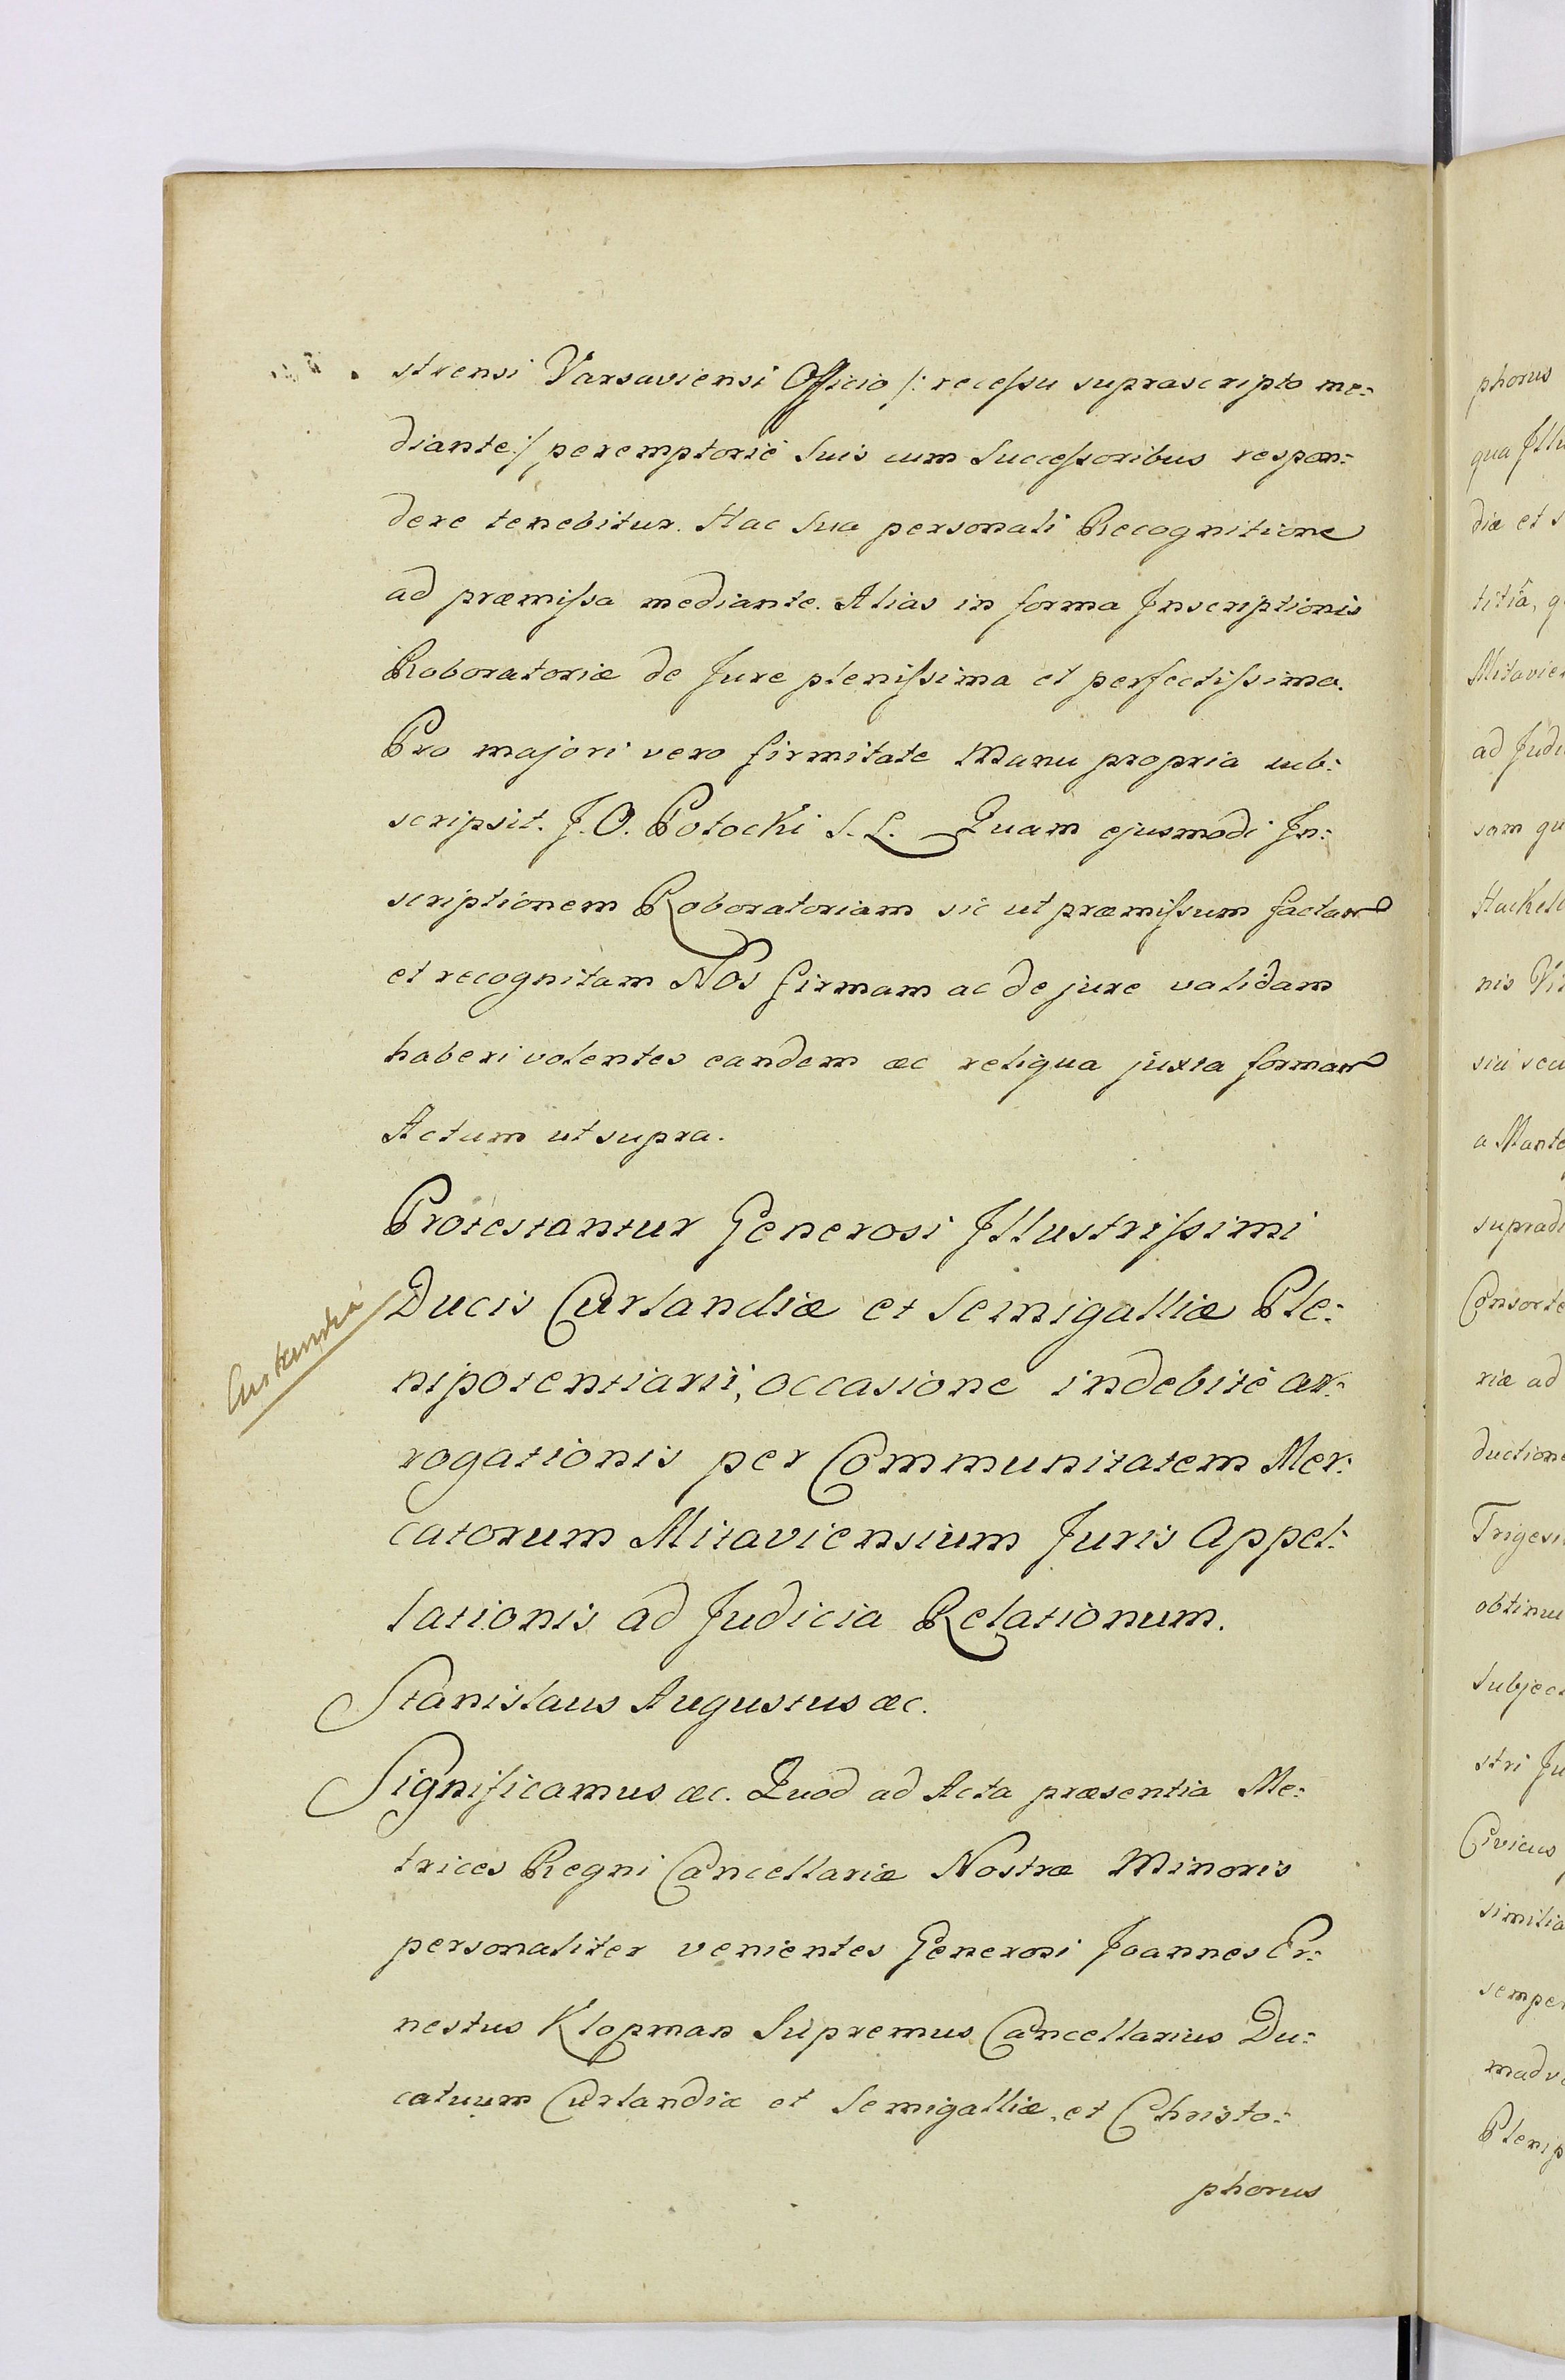 strensi Varsaviensi Officio /: recessu suprascripto me:
diante :/ peremptorié suis cum Successoribus respon:
dere tenebitur. Hac sua personali Recognitione
ad præmissa mediante. Alias in forma Inscriptionis
Roboratoriæ de Jure plenissima et perfectissima.
Pro majori vero firmitate Manu propria sub:
scripsit. J. O. Potocki S. L. Quam ejusmodi In:
scriptionem Roboratoriam sic ut præmissum factam
et recognitam Nos firmam ac de jure validam
haberi volentes eandem æc reliqua juxta formam
Actum ut supra.
Protestantur Generosi Illustrissimi
Ducis Curlandiæ et Semigalliæ Ple:
nipotentiarii, occasione indebité ar:
rogationis per Communitatem Mer:
catorum Mitaviensium Juris Appel:
lationis ad Judicia Relationum.
Stanislaus Augustus æc.
Significamus æc. Quod ad Acta præsentia Me:
trices Regni Cancellariæ Nostræ Minoris
personaliter venientes Generosi Joannes Er:
nestus Klopman Supremus Cancellarius Du:
catuum Curlandiæ et Semigalliæ, et Christo:
phorus
phorus
qua Illu
diæ et s
titiâ, q
Mitavien
ad Judi
sam qu
Hackel
nis Vi
sui seu
a Mante
supradi
Consorte
riæ ad
duction
Trigesi
obtinu
Subject
stri Ju
Civicus
similia
semper
madve
Plenip